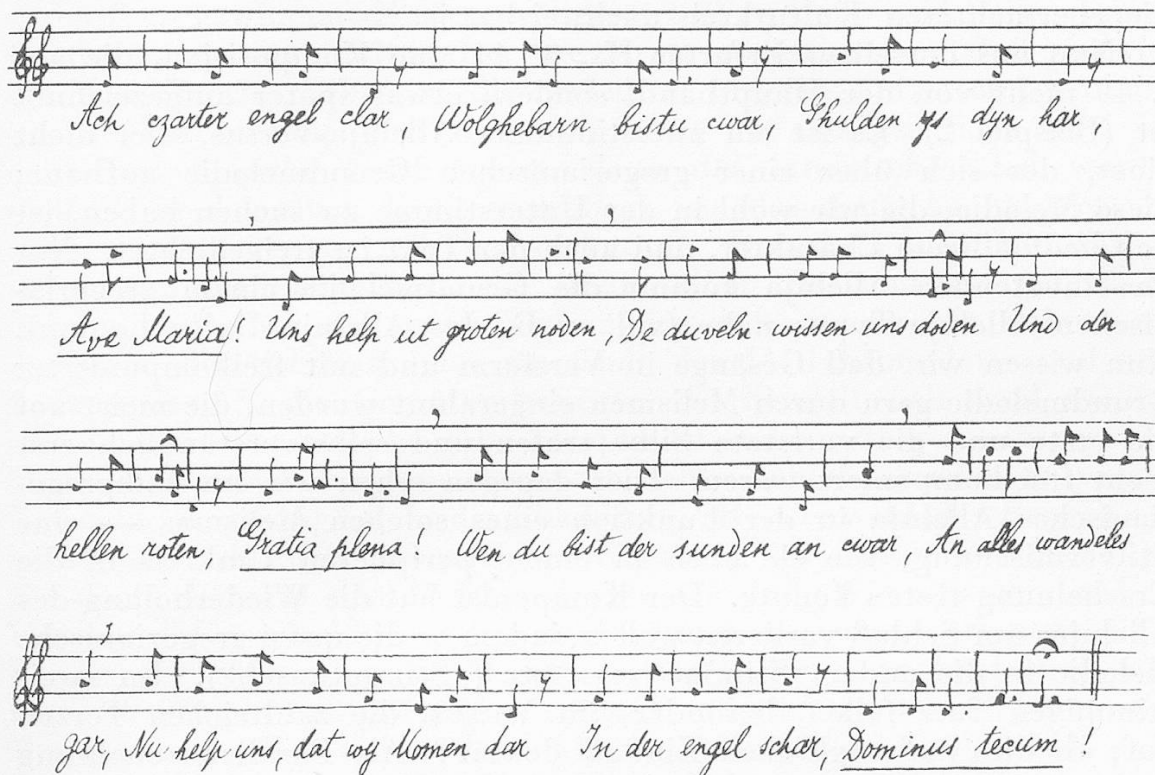 Ach czarter engel clar Wolghebarn bistu cwar, Ghulden ys dyn har,
Ave Maria! Uns help ut groten noden, De duveln wissen uns doden Und der
hellen roten, Gratia plena! Wen du bist der sunden an cwar, An alles wandeles
gar, Nu help uns, dat wy komen dar In der engel schar, Dominus tecum!